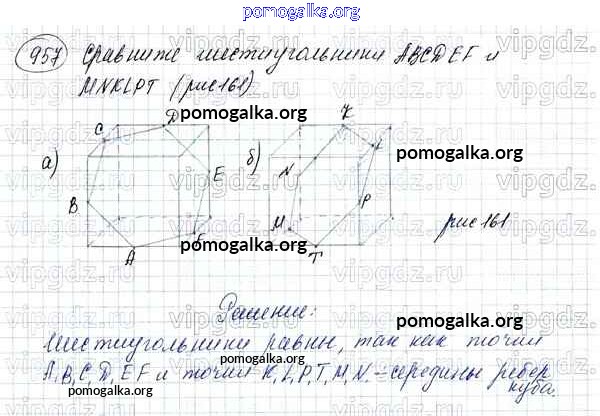 pomogalka.org
957 Сравните шестиугольники ABCDEF и
MNKLPT (рис 161)
pomogalka.org
а) C D E B A F
pomogalka.org
б) K L N P M T
pomogalka.org
рис 161
pomogalka.org
Решение:
Шестиугольники равны, так как точки
pomogalka.org
A, B, C, D, E F и точки K, L, P, T, M, N, - середины ребер
куба.
pomogalka.org
vipgdz.com